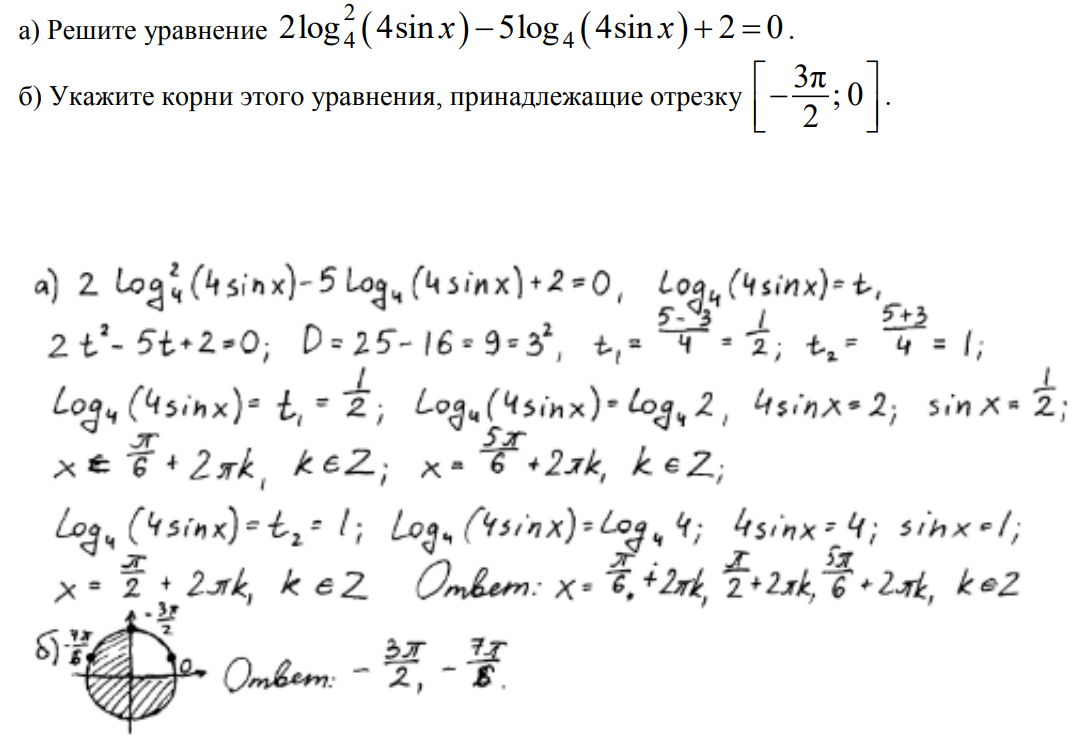 а) Решите уравнение 2log₄²(4sin x) − 5log₄(4sin x) + 2 = 0.
б) Укажите корни этого уравнения, принадлежащие отрезку [−3π/2; 0].
а) 2 log₄²(4sinx) − 5 log₄(4sinx) + 2 = 0, log₄(4sinx) = t,
2t² − 5t + 2 = 0; D = 25 − 16 = 9 = 3², t₁ = (5−3)/4 = 1/2; t₂ = (5+3)/4 = 1;
log₄(4sinx) = t₁ = 1/2; log₄(4sinx) = log₄2, 4sinx = 2; sinx = 1/2;
x = π/6 + 2πk, k∈Z; x = 5π/6 + 2πk, k∈Z;
log₄(4sinx) = t₂ = 1; log₄(4sinx) = log₄4; 4sinx = 4; sinx = 1;
x = π/2 + 2πk, k∈Z Ответ: x = π/6 + 2πk, π/2 + 2πk, 5π/6 + 2πk, k∈Z
б) −7π/6 −3π/2 0 Ответ: −3π/2, −7π/6.